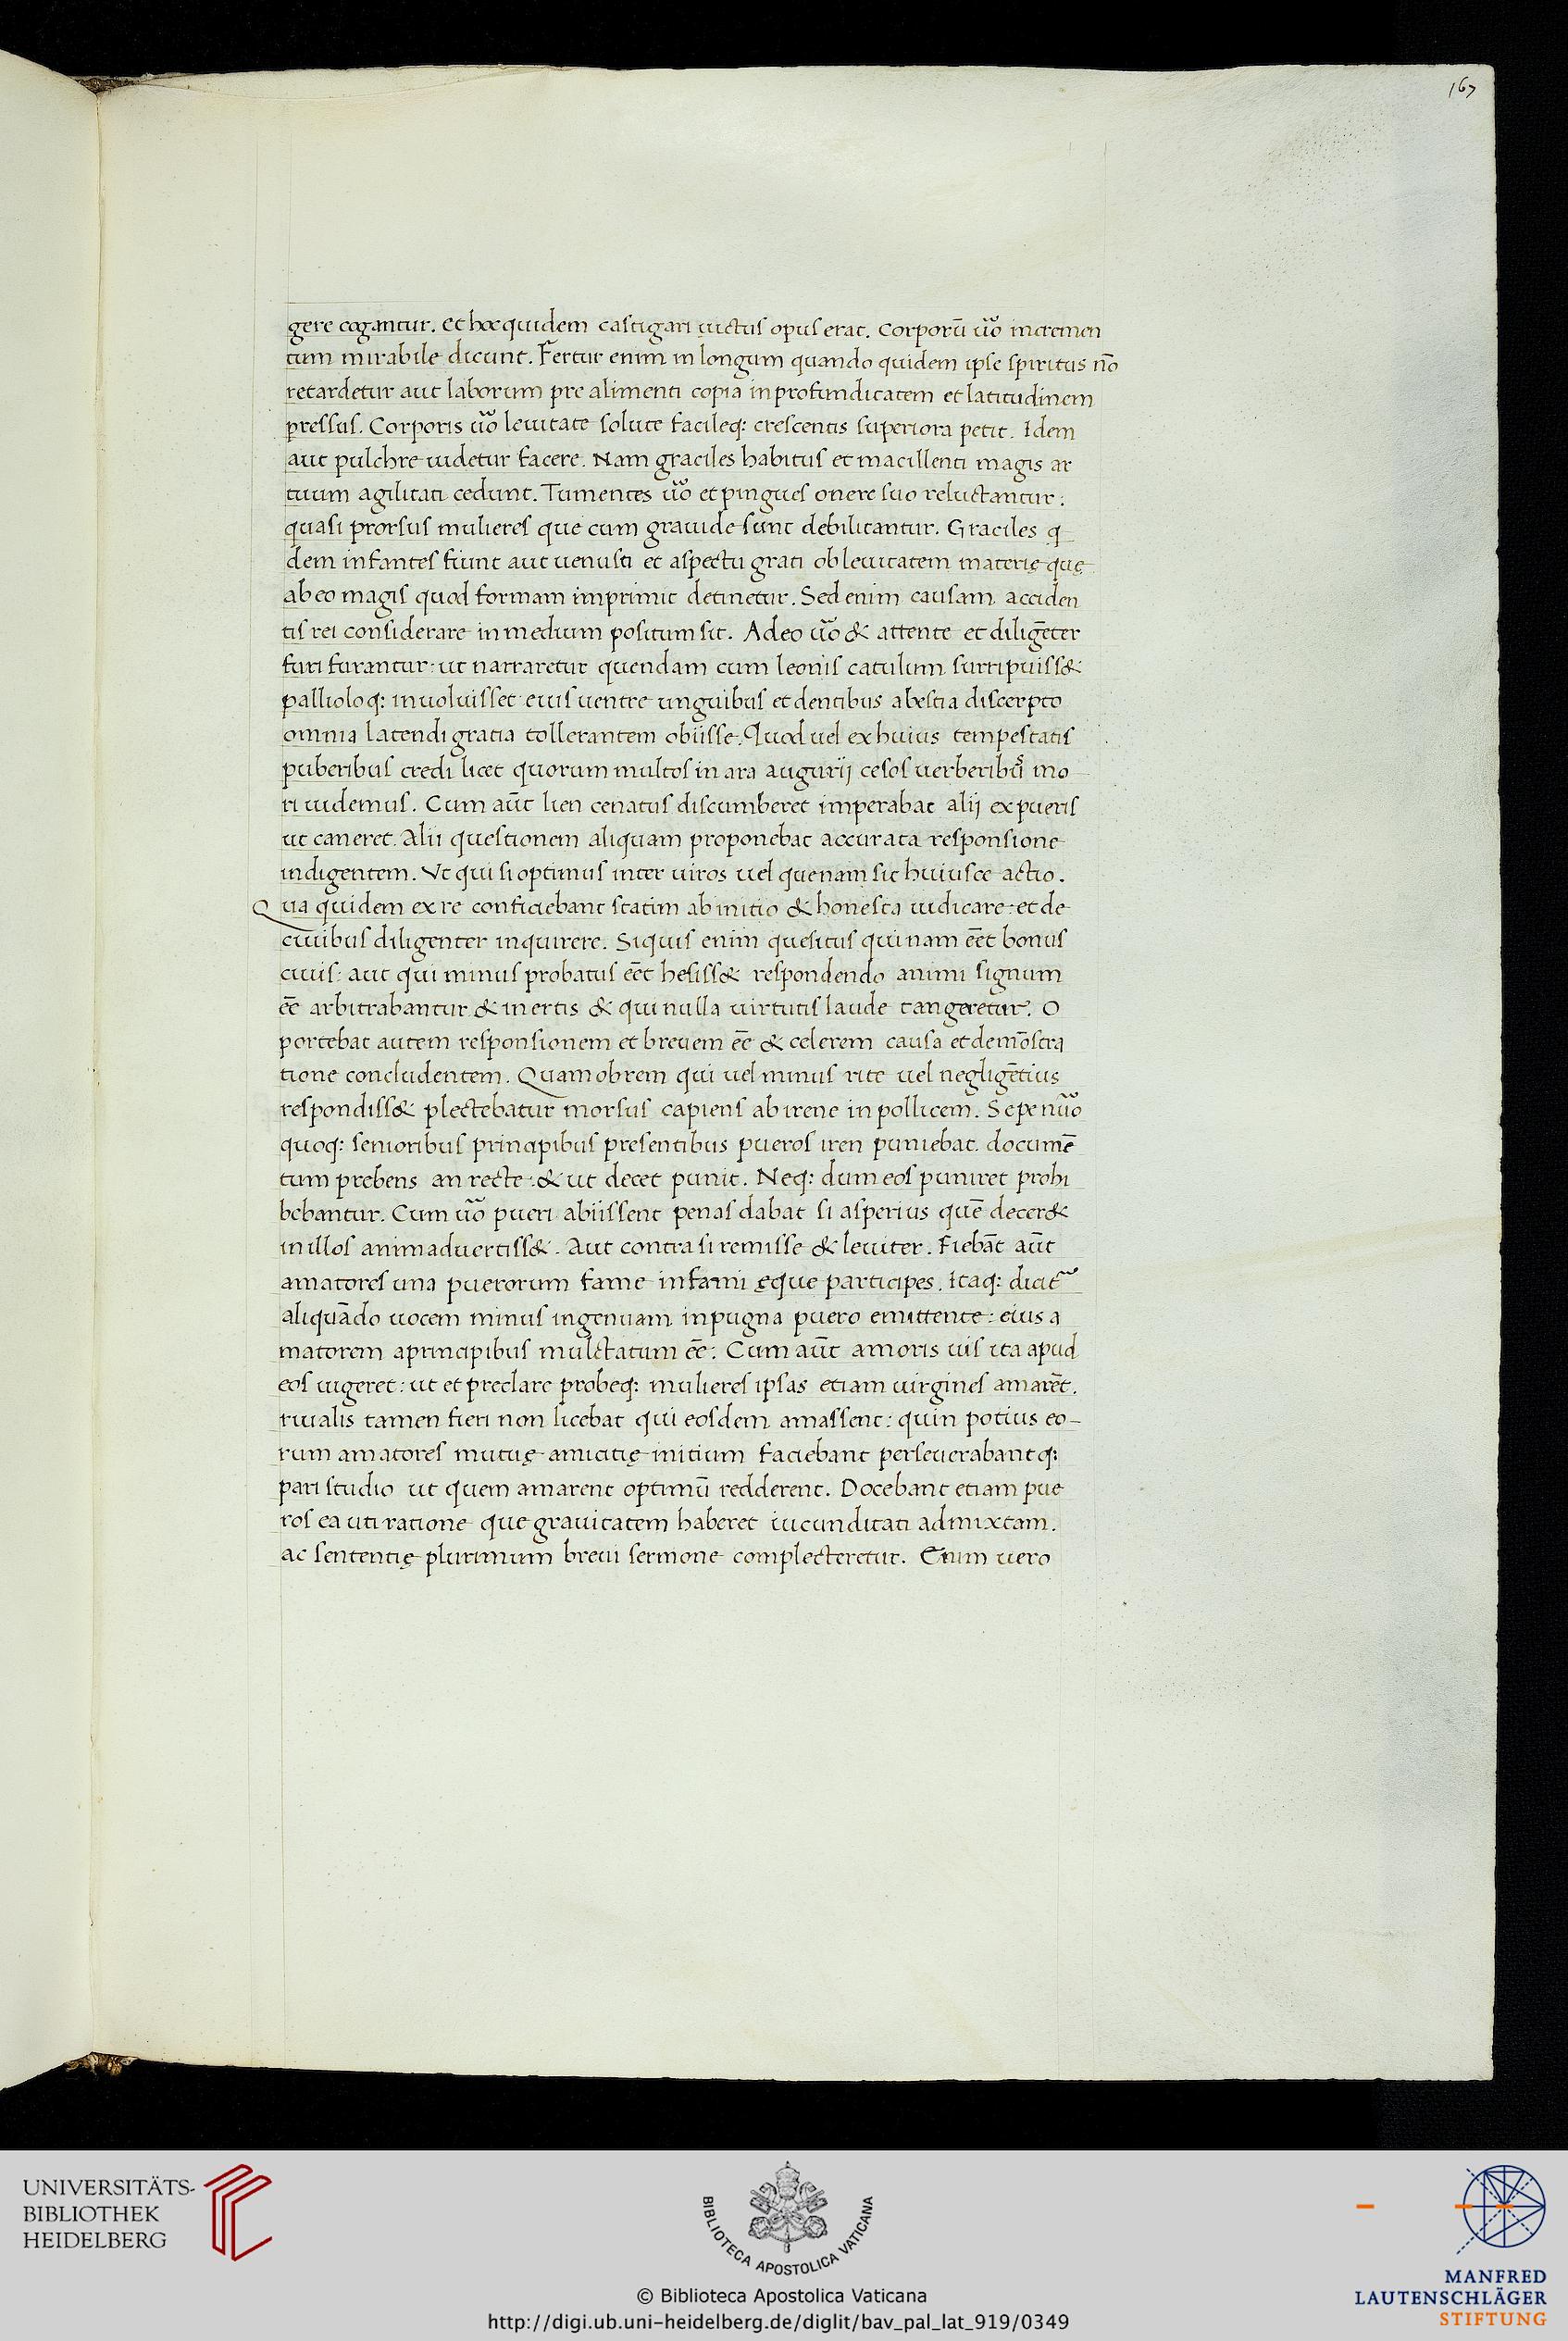 167
gere cogantur. et hoc quidem castigari uictus opus erat. Corporū ūo incremen
tum mirabile dicunt. Fertur enim in longum quando quidem ipse spiritus nō
retardetur aut laborum pre alimenti copia in profunditatem et latitudinem
pressus. Corporis ūo leuitate solute facileq: crescentis superiora petit. Idem
aut pulchre uidetur facere. Nam graciles habitus et macillenti magis ar
tuum agilitati cedunt. Tumentes ūo et pingues onere suo reluctantur:
quasi prorsus mulieres que cum grauide sunt debilitantur. Graciles q
dem infantes fiunt aut uenusti et aspectu grati ob leuitatem materię quę
ab eo magis quod formam imprimit detinetur. Sed enim causam acciden
tis rei considerare in medium positum sit. Adeo ūo & attente et diligēter
furi furantur: ut narraretur quendam cum leonis catulum surripuiss&
pallioloq: inuoluisset eius uentre unguibus et dentibus abestia discerpto
omnia latendi gratia tollerantem obiisse. Quod uel ex huius tempestatis
puberibus credi licet quorum multos in ara augurij cesos uerberibus mo
ri uidemus. Cum aūt lien cenatus discumberet imperabat alij ex pueris
ut caneret. Alii questionem aliquam proponebat accurata responsione
indigentem. Vt qui si optimus inter uiros uel quenam sit huiusce actio.
Qua quidem ex re conficiebant statim ab initio & honesta iudicare: et de
ciuibus diligenter inquirere. Siquis enim quesitus qui nam eēt bonus
ciuis: aut qui minus probatus eēt hesiss& respondendo animi signum
eē arbitrabantur & inertis & qui nulla uirtutis laude tangeretur. O
portebat autem responsionem et breuem eē & celerem causa et demōstra
tione concludentem. Quamobrem qui uel minus rite uel negligētius
respondiss& plectebatur morsus capiens ab irene in pollicem. Sepe nūo
quoq: senioribus principibus presentibus pueros iren puniebat. documē
tum prebens an recte: & ut decet punit. Neq: dum eos puniret prohi
bebantur. Cum ūo pueri abiissent penas dabat si asperius quē decer&
in illos animaduertiss&. Aut contra si remisse & leuiter. Fiebāt aūt
amatores una puerorum fame infami ęque participes. Itaq: dicit
aliquādo uocem minus ingenuam in pugna puero emittente: eius a
matorem aprincipibus mulctatum eē: Cum aūt amoris uis ita apud
eos uigeret: ut et preclare probeq: mulieres ipsas etiam uirgines amarēt.
riualis tamen fieri non licebat qui eosdem amassent: quin potius eo-
rum amatores mutuę amicitię initium faciebant perseuerabantq:
pari studio ut quem amarent optimū redderent. Docebant etiam pue
ros ea uti ratione que grauitatem haberet iucunditati admixtam.
ac sententię plurimum breui sermone complecteretur. Enim uero
UNIVERSITÄTS-
BIBLIOTHEK
HEIDELBERG
BIBLIOTECA APOSTOLICA VATICANA
© Biblioteca Apostolica Vaticana
http://digi.ub.uni-heidelberg.de/diglit/bav_pal_lat_919/0349
MANFRED
LAUTENSCHLÄGER
STIFTUNG